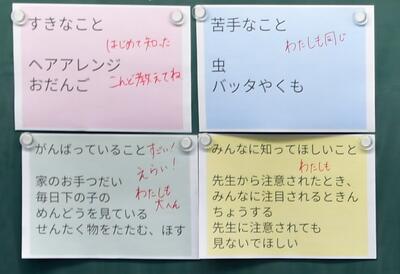 すきなこと
はじめて知った
ヘアアレンジ
おだんご
こんど教えてね
苦手なこと
わたしも同じ
虫
バッタやくも
がんばっていること
すごい!
えらい!
家のお手つだい
毎日下の子の
めんどうを見ている
せんたく物をたたむ、ほす
わたしも
大へん
みんなに知ってほしいこと
わたしも
先生から注意されたとき、
みんなに注目されるときん
ちょうする
先生に注意されても
見ないでほしい